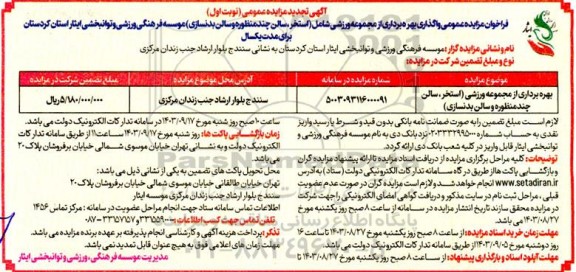 آگهی تجدید مزایده عمومی (نوبت اول)
فراخوان مزایده عمومی واگذاری بهره برداری از مجموعه ورزشی شامل (استخر، سالن چند منظوره و سالن بدنسازی) موسسه فرهنگی ورزشی و توانبخشی ایثار استان کردستان
برای مدت یکسال
نام و نشانی مزایده گزار: موسسه فرهنگی ورزشی و توانبخشی ایثار استان کردستان به نشانی سنندج بلوار ارشاد جنب زندان مرکزی
نوع و مبلغ تضمین شرکت در مزایده:
موضوع مزایده
شماره مزایده در سامانه
آدرس محل موضوع مزایده
مبلغ تضمین شرکت در مزایده
بهره برداری از مجموعه ورزشی (استخر، سالن چند منظوره و سالن بدنسازی)
۵۰۰۳۰۹۳۱۱۶۰۰۰۰۹۱
سنندج بلوار ارشاد جنب زندان مرکزی
۵/۱۸۰/۰۰۰/۰۰۰ ریال
لازم است مبلغ تضمین را به صورت ضمانت نامه بانکی بدون قید و شرط یا رسید واریز
نقدی به حساب شماره ۲۰۳۳۳۲۹۹۵۰۰۰ نزد بانک دی به نام موسسه فرهنگی ورزشی و
توانبخشی ایثار قابل واریز در کلیه شعب بانک دی ارائه گردد.
توضیحات: کلیه مراحل برگزاری مزایده از دریافت اسناد مزایده تا ارائه پیشنهاد مزایده گران
و بازگشایی پاکت ها از طریق درگاه سامانه تدارکات الکترونیکی دولت (ستاد) به آدرس
www.setadiran.ir انجام خواهد شد و لازم است مزایده گران در صورت عدم عضویت
قبلی، مراحل ثبت نام در سایت مذکور و دریافت گواهی امضای الکترونیکی را جهت شرکت
در مزایده محقق سازند تاریخ انتشار مزایده در سامانه از ساعت ۸ صبح روز یکشنبه مورخ
۱۴۰۳/۰۸/۲۷ می باشد.
مهلت زمان خرید اسناد مزایده: از ساعت ۸ صبح روز یکشنبه مورخ ۱۴۰۳/۰۸/۲۷ تا ساعت ۱۶
روز دوشنبه مورخ ۱۴۰۳/۰۹/۰۵ از طریق سامانه تدارکات الکترونیک دولت می باشد.
مهلت آپلود اسناد و بارگذاری پیشنهاد: از ساعت ۸ صبح روز یکشنبه مورخ ۱۴۰۳/۰۸/۲۷ تا
ساعت ۱۰ صبح روز شنبه مورخ ۱۴۰۳/۰۹/۱۷ در سامانه تدارکات الکترونیک دولت می باشد.
زمان بازگشایی پاکت ها: روز شنبه مورخ ۱۴۰۳/۰۹/۱۷ ساعت ۱۱ از طریق سامانه تدارکات
الکترونیک دولت و به نشانی تهران خیابان طالقانی خیابان موسوی شمالی برفروشان پلاک ۲۰
می باشد.
محل تحویل پاکت های تضمین به یکی از نشانی ذیل می باشد:
تهران خیابان طالقانی خیابان موسوی شمالی برفروشان پلاک ۲۰
سنندج بلوار ارشاد جنب زندان مرکزی موسسه ایثار
اطلاعات تماس سامانه ستاد جهت انجام مراحل عضویت در سامانه: مرکز تماس ۱۴۵۶
تلفن تماس جهت کسب اطلاعات:
تذکر: پرداخت هزینه آگهی و کارشناسی انجام پذیرفته بر عهده برنده مزایده می باشد.
مهلت زمان های اعلامی فوق به هیچ عنوان قابل تمدید نمی باشد.
مدیریت موسسه فرهنگی، ورزشی و توانبخشی ایثار